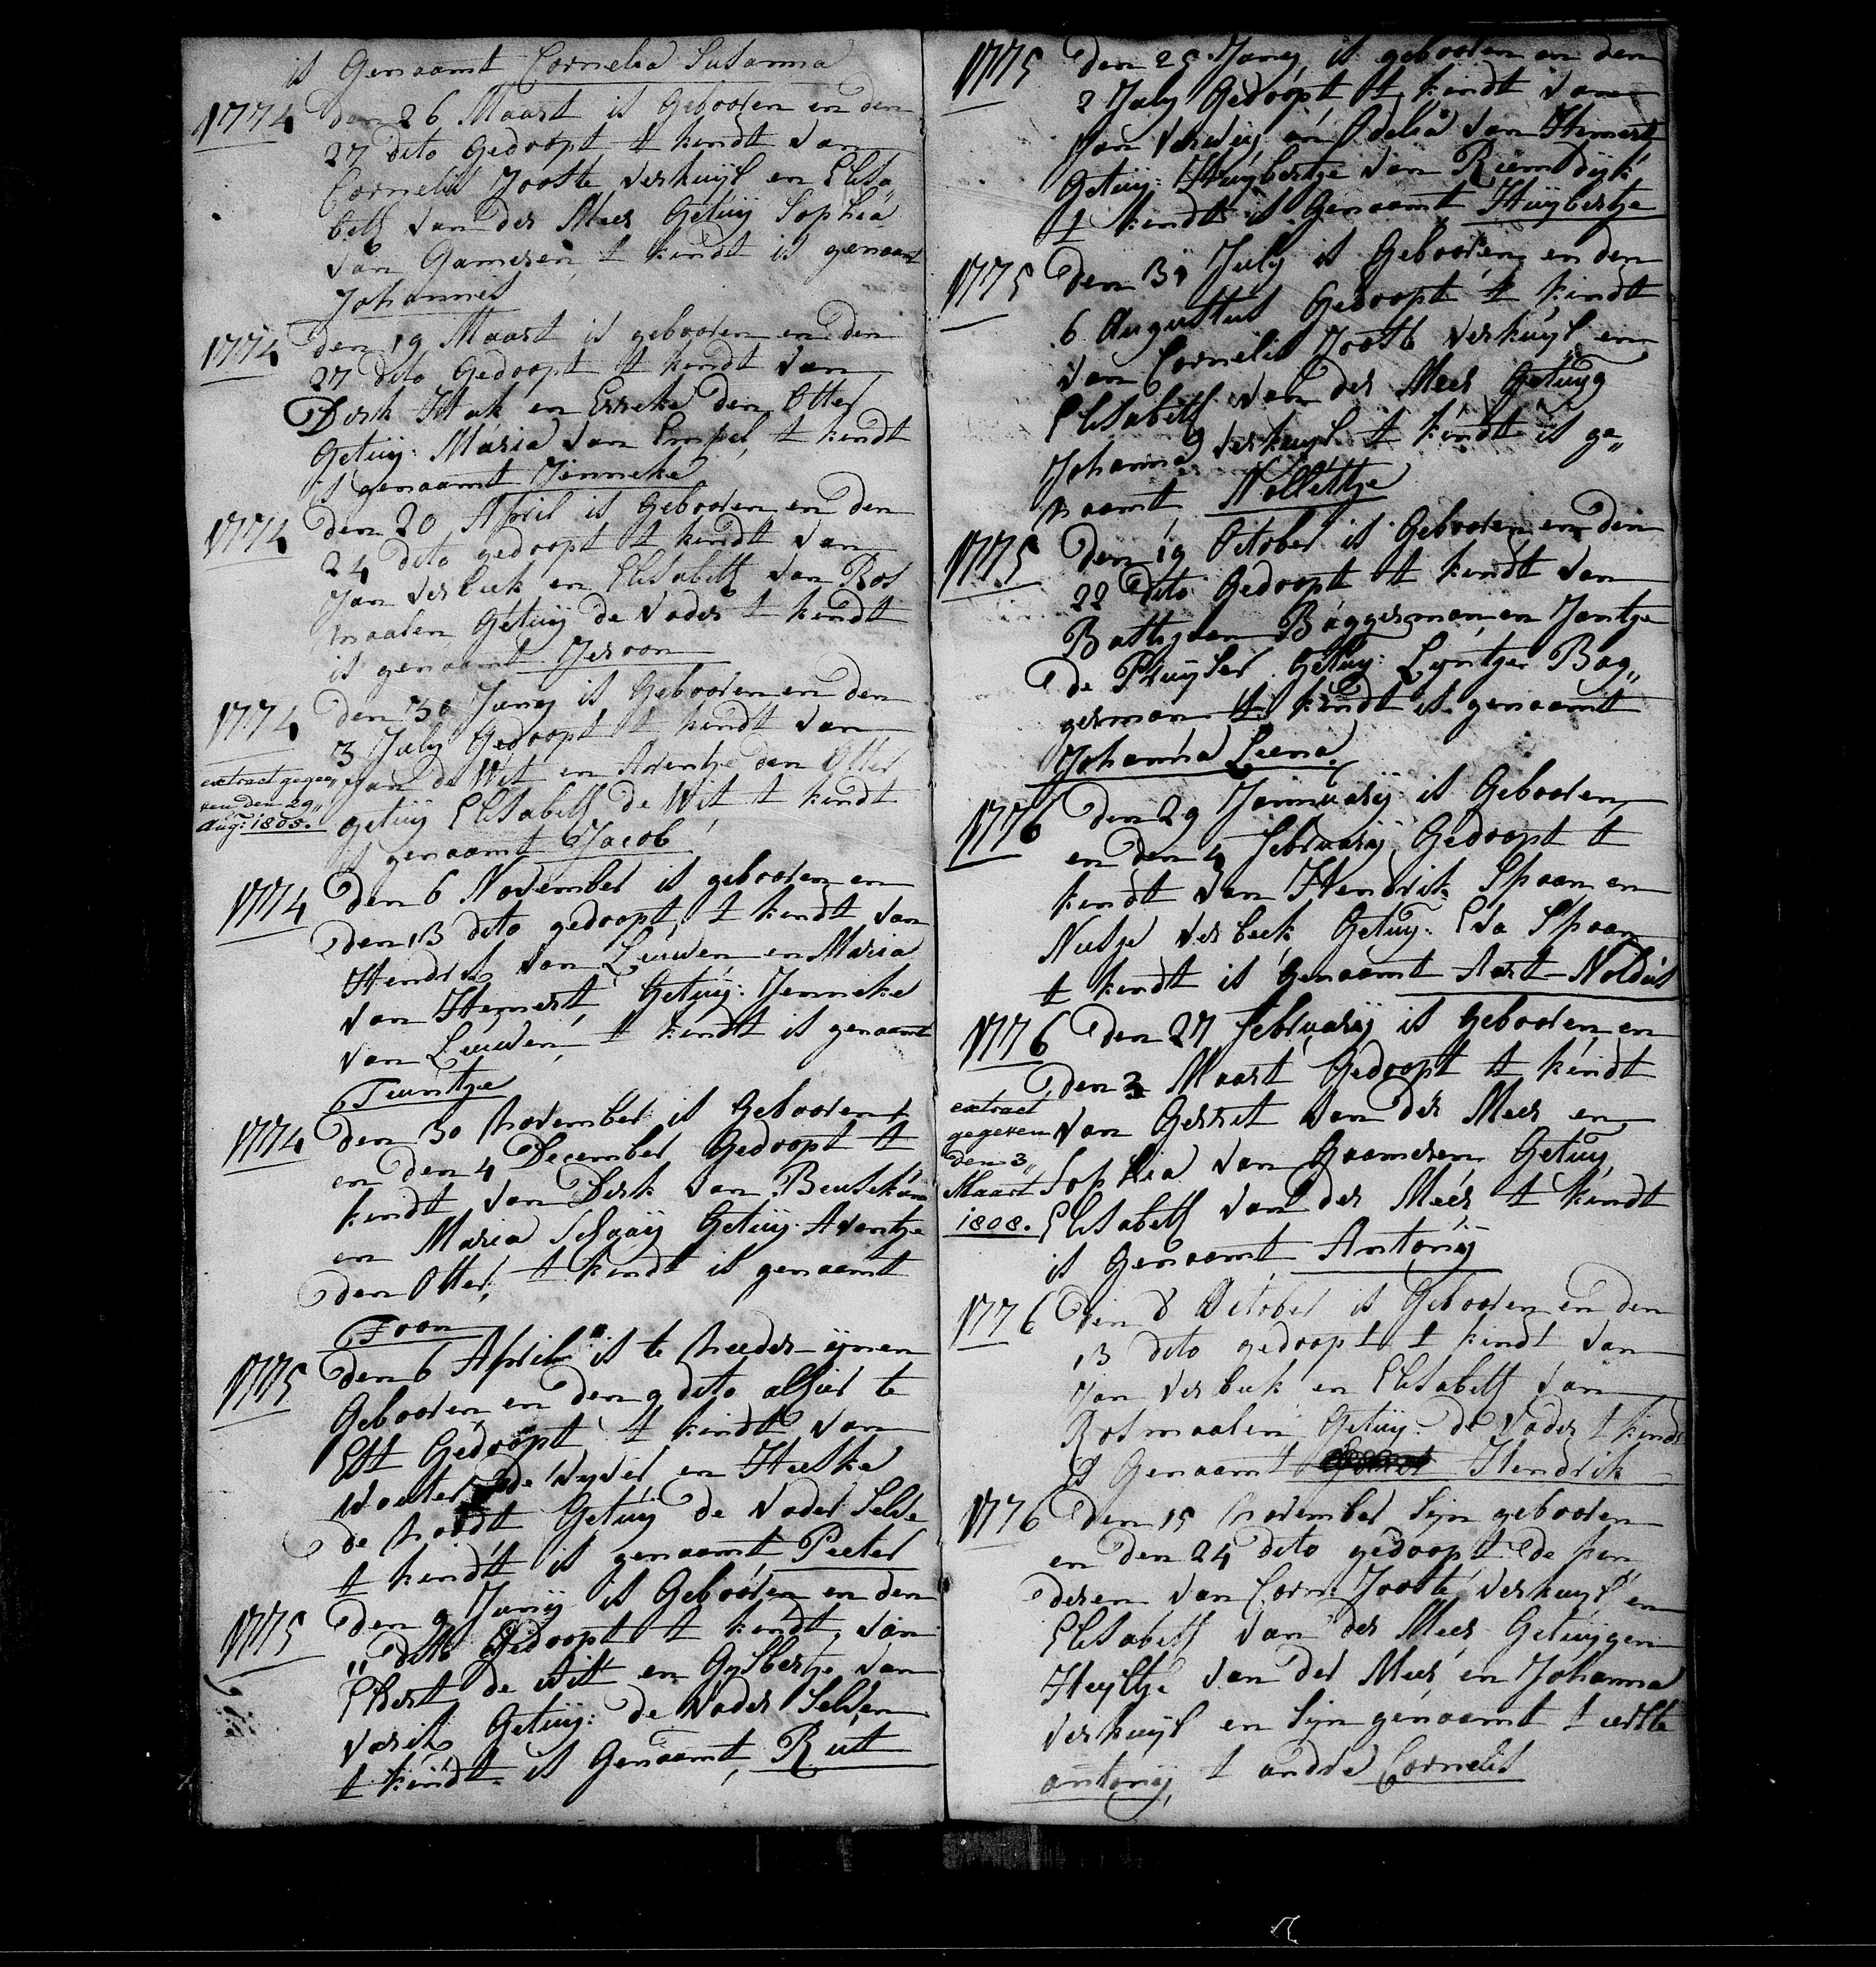 is Genaamt Cornelia Susanna
1774 Den 26 Maart is Gebooren en den
27 dito Gedoopt t kindt van
Cornelis Jooste Verkuyl en Elisa„
beth van der Meer Getuij Sophia
van Gameren, t kindt is genaamt
Johannes
1774 Den 19 Maart is gebooren en den
27 dito Gedoopt t kindt van
Dirk Hak en Erreke den Otter
Getuij: Maria van Empel, t kindt
is genaamt Jenneke
1774 Den 20 April is Gebooren en den
24 dito gedoopt t kindt van
Jan Verbeek en Elisabeth van Ros
maalen Getuij de Vader t kindt
is genaamt Jeroon
1774 Den 30 Junij is Gebooren en den
3 July Gedoopt t kindt van
extract gegee„
ven den 29„
Aug: 1805.
Jan de Wit en Arentje den Otter
getuij Elisabeth de Wit, t kindt
is genaamt Jacob
1774 Den 6 November is gebooren en
Den 13 dito gedoopt, t kindt van
Hendrik van Leuwen en Maria
van Hemert, Getuij: Jenneke
van Leuwen, t kindt is genaamt
Teuntje
1774 Den 30 November is Gebooren
en den 4 December Gedoopt t
kindt van Dirk van Beusekom
en Maria Schaaij Getuij: Arentje
den Otter, t kindt is genaamt
Toon
1775 Den 6 April is te Needer-ijnen
Gebooren en den 9 dito alhier te
Est Gedoopt t kindt van
Wouter de en Heeske
de Getuij de Vader Selve
t kindt is genaamt Peeter
1775 Den 9 Junij is Gebooren en den
11 dito Gedoopt t kindt van
Elbert de Witt en Gysbertje van
Varik Getuij: de Vader Selven
t kindt is Genaamt Rut
1775 Den 25 Junij is gebooren en den
2 July Gedoopt t kindt van
Jan Verweij en Adelia van Hemert
Getuij: Huijbertje van Riemsdijk
t kindt is Genaamt Huijbertje
1775 Den 31 July is Gebooren en den
6 Augustus Gedoopt t kindt
van Cornelis Jooste Verkuyl en
Elisabeth van der Meer Getuyg
Johanna Verkuyl t kindt is ge„
naamt Nollettje
1775 Den 19 October is Gebooren en den
22 dito Gedoopt t kindt van
Battjaan Baggerman en Jantje
De Pluyser Getuy: Lyntje Bag„
german t kindt is genaamt
Johanna Leena
1776 Den 29 Jannuarij is Gebooren
en den 4 februarij Gedoopt t
kindt van Hendrik Spaan en
Neesje Verbeek Getuy: Eva Spaan
t kindt is Genaamt Aart-Noldus
1776 Den 27 februarij is Gebooren en
Den 3 Maart Gedoopt t kindt
extract
gegeven
den 3„
Maart
1808.
van Gerrit van der Meer en
Sophia van Gaameren Getuy
Elisabeth van der Meer t kindt
is Genaamt Antonij
1776 Den 8 October is Gebooren en den
13 dito gedoopt t kindt van
Jan Verbeek en Elisabeth van
Rosmaalen Getuy: de Vader t kindt
is Genaamt Hendrik
1776 Den 15 November Sijn gebooren
en den 24 dito gedoopt de kin
deren van Corn: Jooste Verkuyl en
Elisabeth van der Meer Getuijgen
Heyltje van der Meer en Johanna
Verkuyl en Sijn genaamt t eerste
antonij, t andre Cornelis